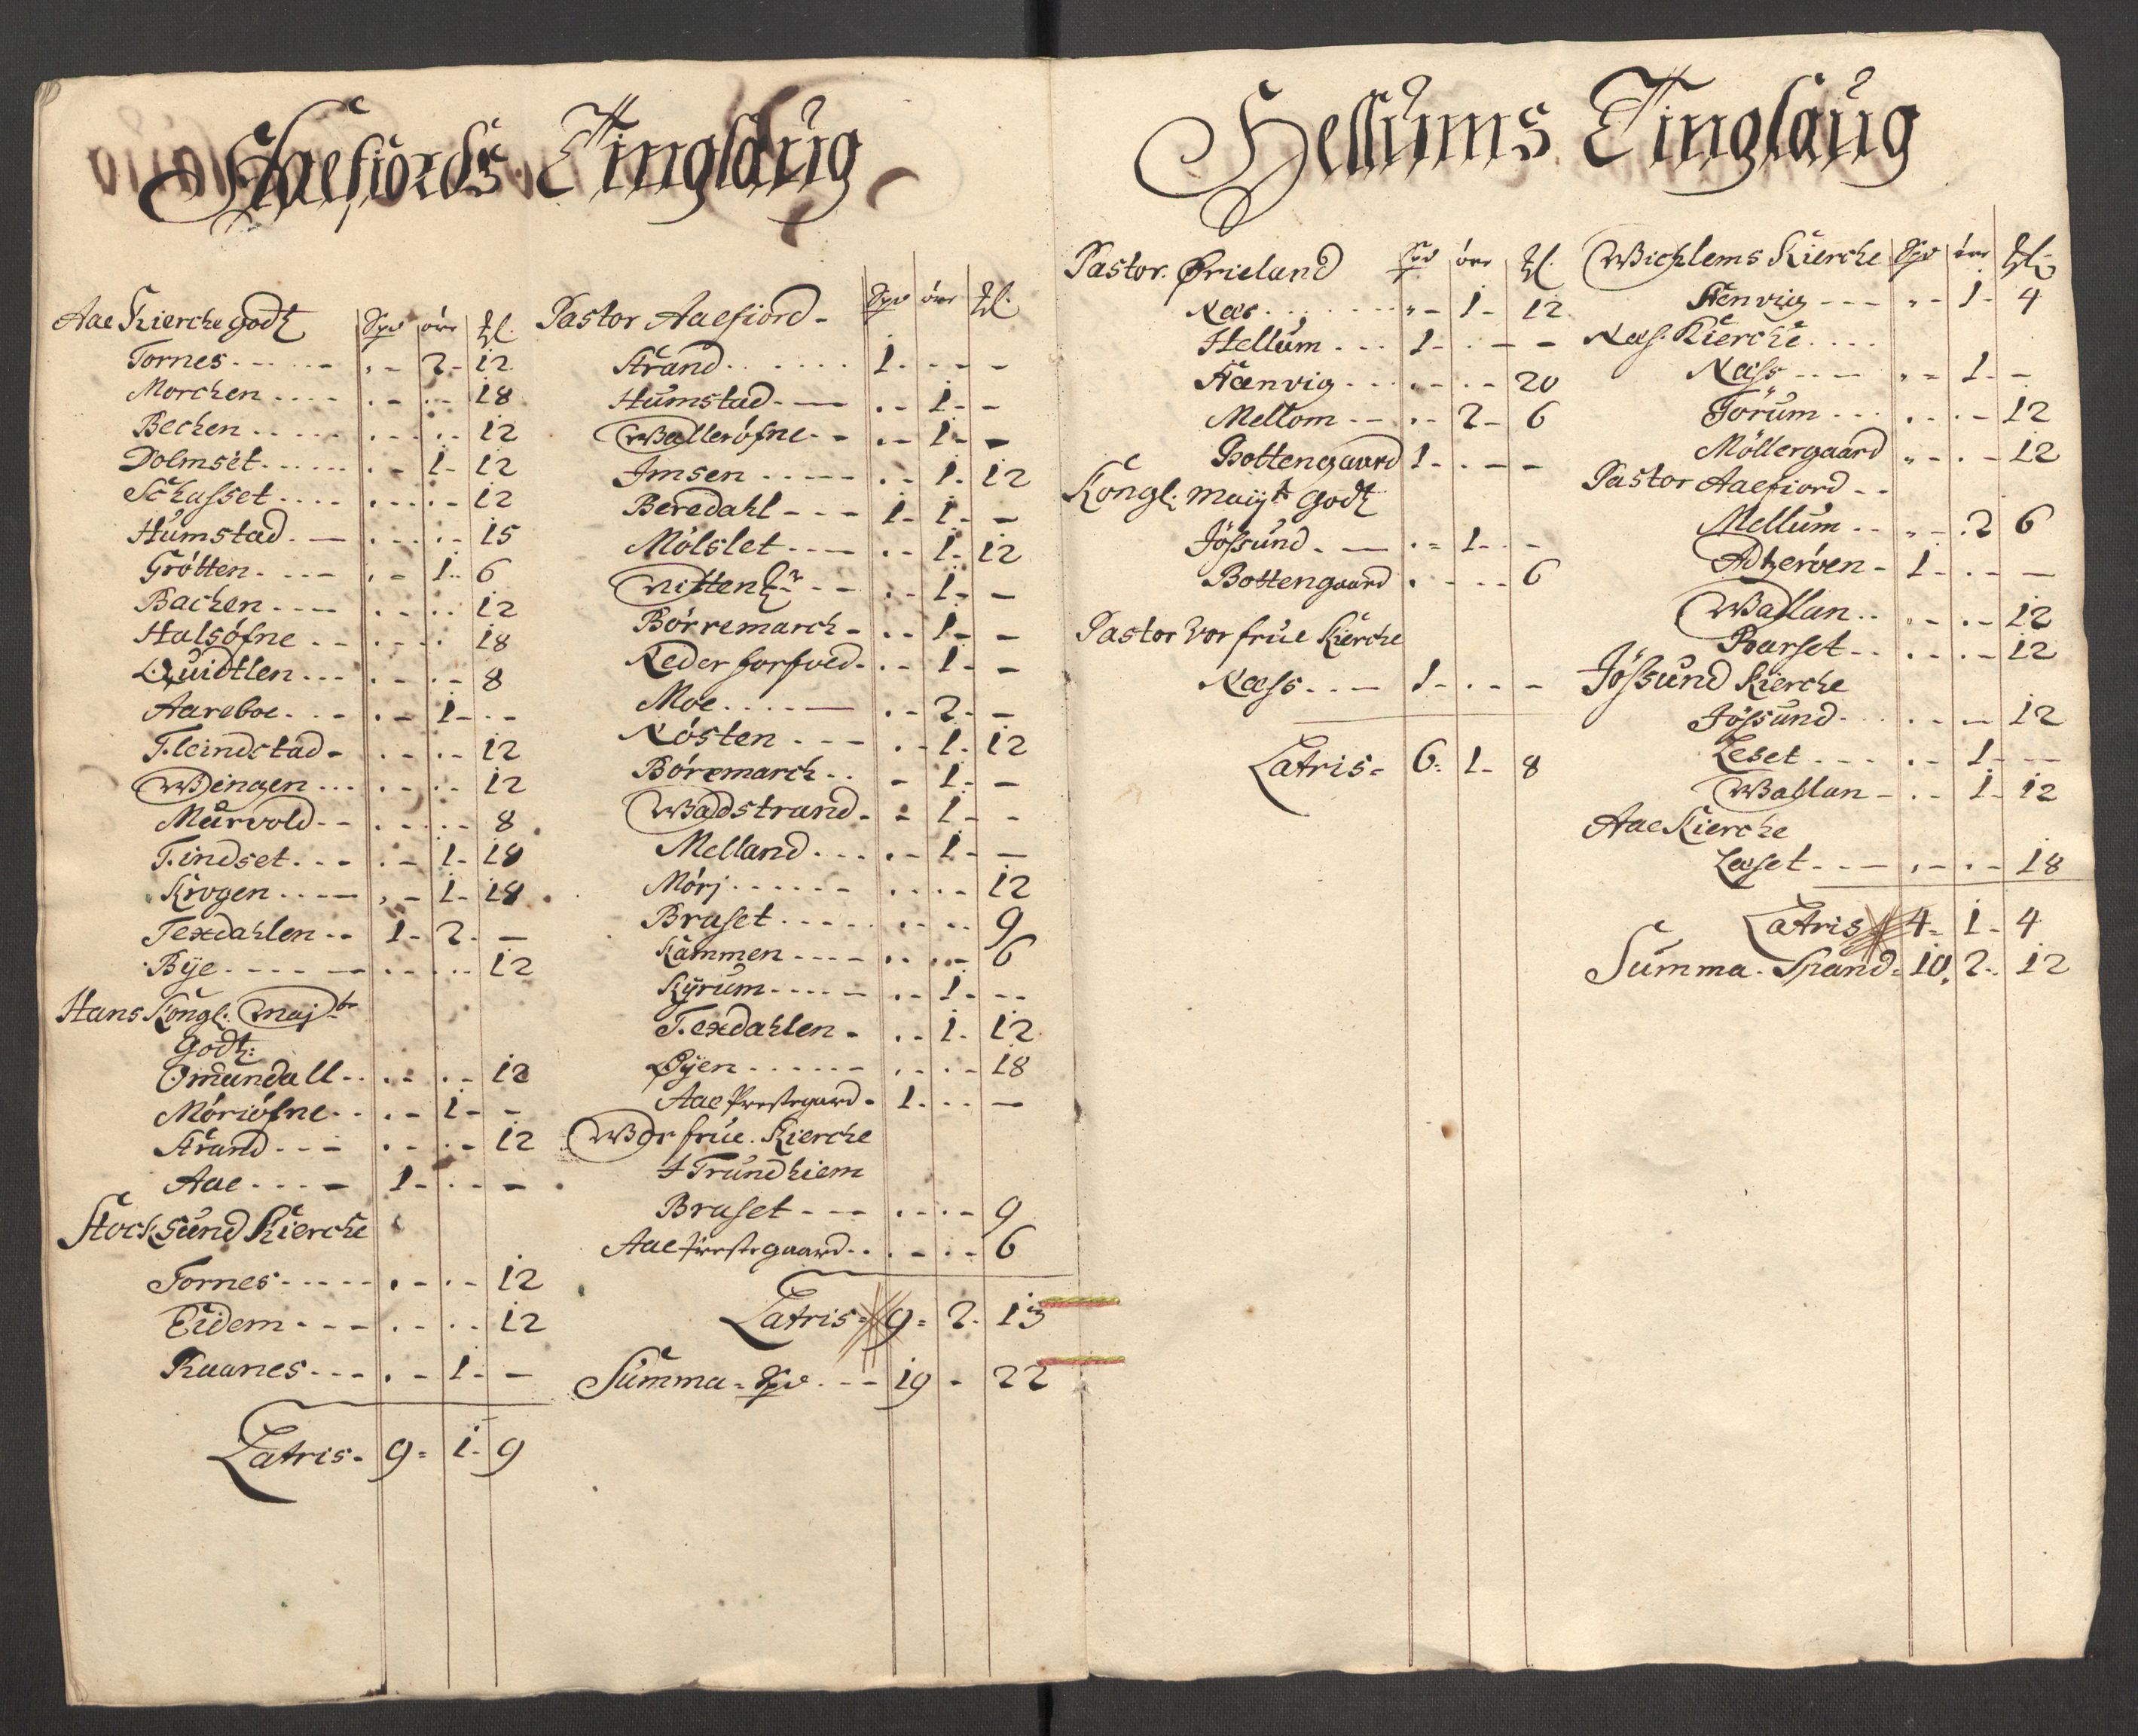 Aaefiords Tinglaug
Aae Kierche godtz Spd öre ↄl.
Tornes - - - - - - 2 - 12
Morchen - - - - - - 18
Bechen - - - - - - 12
Dolmset - - - - 1 - 12
Schasset - - - - - - 12
Humstad - - - - - 15
Grötten - - - - 1 - 6
Bachen - - - - - - 12
Halsöfne - - - - - 18
Quidtlen - - - - - 8
Aareboe - - - - 1 - -
Fleindstad - - - - 12
Wingen - - - - - 12
Murvold - - - - - 8
Findset - - - - 1 - 18
Krogen - - - - 1 - 18
Texdahlen - - 1 - 2 - -
Bye - - - - - - 12
Hans Kongl: Mayts
Godtz:
Omundall - - - - 12
Möriöfne - - - 1 - -
Strand - - - - - 12
Aae - - - - 1 - - -
Stocksund Kierche
Tornes - - - - - - 12
Eidem - - - - - - 12
Raanes - - - - 1 - -
Latris - 9 = 1 - 9
Pastor Aaefiord - Spd öre ↄl.
Strand - - - - 1 - - -
Humstad - - - - 1 - -
Walleröfne - - - 1 - -
Imsen - - - - - 1 - 12
Beredahl - - - 1 - 1 - -
Mölslet - - - - 1 - 12
Nitten - - - - 1 - -
Börremarch - - - 1 - -
Neder - - - 1 - -
Moe - - - - - 2 - -
Nösten - - - - 1 - 12
Böremarch - - - 1 - -
Wadstrand - - 1 - -
Melland - - - - 1 - -
Mörj - - - - - - 12
Braset - - - - - - 9
Kammen - - - - - - 6
Kyrum - - - - - 1 - - -
Texdahlen - - - 1 - 12
Øyen - - - - - - 18
Aae Prestegaard - 1 - - -
Wor frue Kierche
I Trundhiem
Braset - - - - - - 9
Aae Prestegaard - - - - 6
Latris = 9 = 2 - 13
Summa = Spd - - 19 - 22
Hellums Tinglaug
Pastor Ørieland Spd öre ↄl.
Nes - - - - - 1 - 12
Hellum - - - 1 - - -
Stenvig - - - - - 20
Mellom - - - - 2 - 6
Bottengaard 1 - - -
Kongl: Mayts Godtz
Jössund - - - = 1 - -
Bottengaard - - - - 6
Pastor Vor frue Kierche
Næss - - - 1 - - -
Latris = 6 = 1 - 8
Wichlems Kierche Spd öre ↄl.
Stenvig - - - - - 1 - 4
Næss Kierche - - - -
Næss - - - - = 1 - -
Törum - - - - - - 12
Möllergaard - - - 12
Pastor Aaefiord - -
Mellum - - - - 2 6
Adzeröen - 1 - - -
Wallan - - - - - 12
Barset - - - - - 12
Jössund Kierche
Jössund - - - - - 12
Leset - - - - - 1 - -
Wallan - - - 1 - 12
Aae Kierche
Leset - - - - - - 18
Latris 4 = 1 - 4
Summa - Spand = 10, 2 - 12